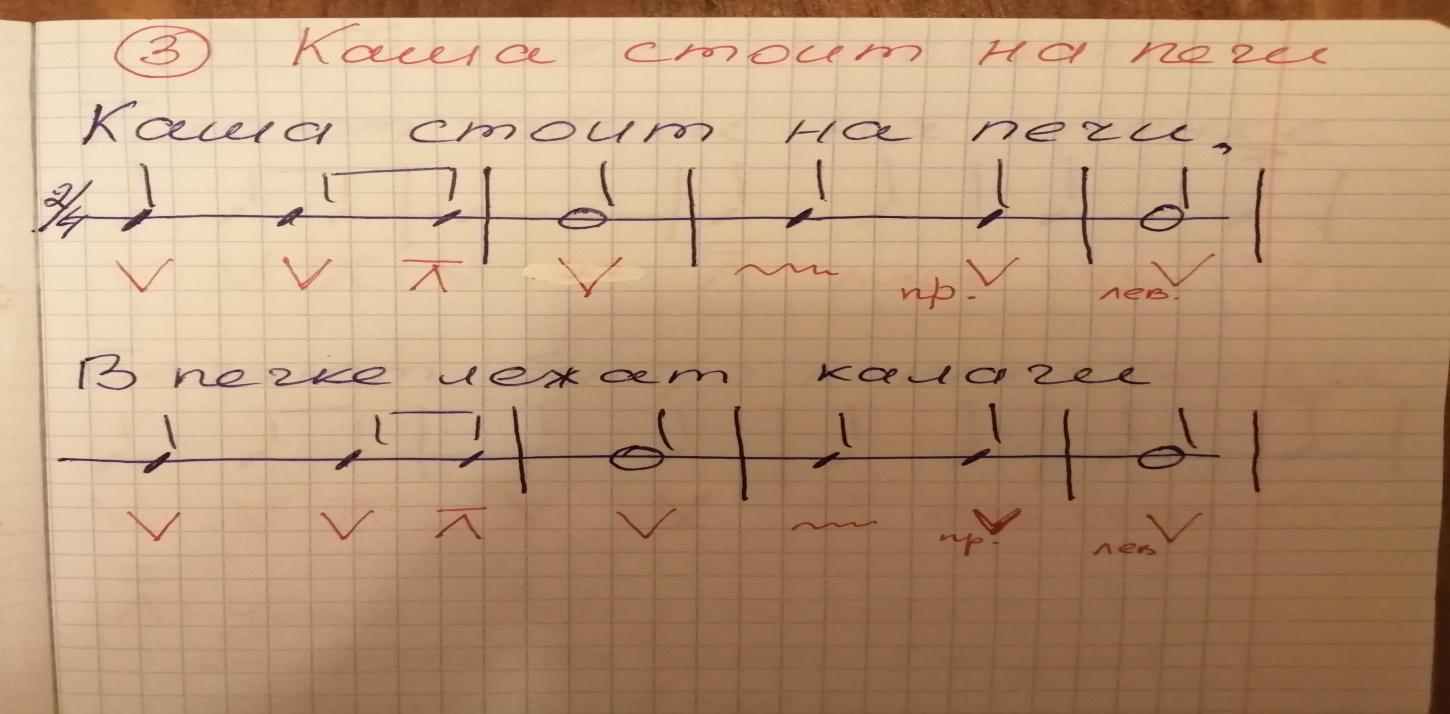 3 Каша стоит на печи
Каша стоит на печи,
2/4
пр. лев.
В печке лежат калачи
пр. лев